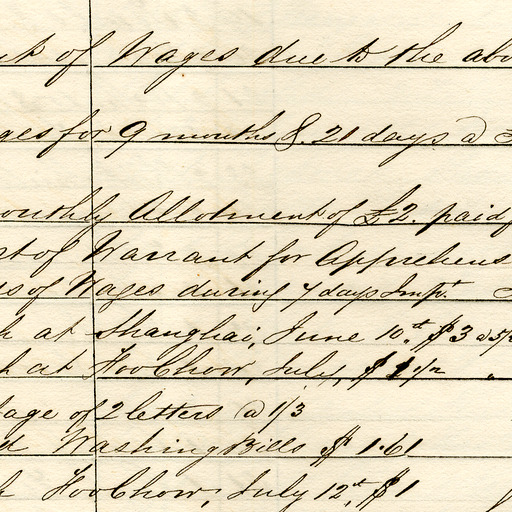 of Wages due to the abo
ges for 9 months & 21 days @
onthly Allotment of £2. paid
of Warrant for Apprehens
s of Wages during 7 days Imp.t
h at Shanghai, June 10th $3 @ 5/
h at FooChow, July, $ 1 1/2 "
age of 2 letters @ 1/3
d Washing Bills $ 1.61
h FooChow, July 12th, $1